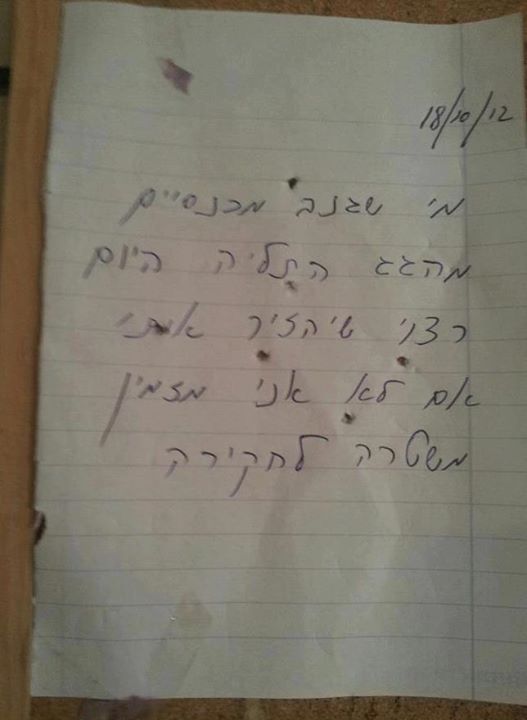 18/10/12
מי שגנב מכנסיים
מהגג התליה היום
רצוי שיהזיר אותי
אם לא אני מזמין
משטרה לחקירה